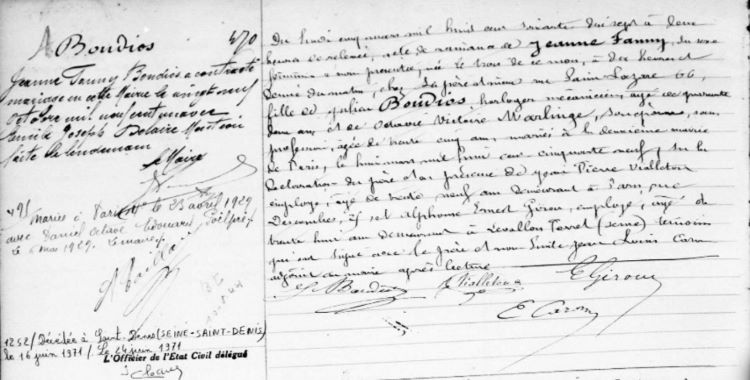 Boudios
Jeanne Fanny Boudios a contracté
mariage en cette Mairie le vingt neuf
octobre mil neuf cent
Emile Joseph Delaire
le lendemain
le Maire
Mariée à Paris le 23 avril 1929
avec Daniel Octave Edouard
le mai 1929. le maire
1252/ Décédée à Saint-Denis (SEINE-SAINT-DENIS)
le 16 juin 1971/. Le 24 juin 1971
L'Officier de l'Etat Civil délégué
Du lundi cinq mars mil huit cent soixante dix sept à deux
heures de relevée, acte de naissance de Jeanne Fanny, du sexe
féminin à nous présentée, née le trois de ce mois, à dix heures et
demie du matin, chez père et mère rue Saint Lazare 66,
fille de Julien Boudios horloger mécanicien, âgé de quarante
deux ans, et de Octavie Victoire Marlinge, son épouse, sans
profession, âgée de trente cinq ans, mariés à la deuxième mairie
de Paris, le mars mil huit cent cinquante neuf, sur la
déclaration du père et en présence de Pierre Vialletous
employé, âgé de trente neuf ans demeurant à Paris, rue
et de Alphonse Ernest Giroux, employé, âgé de
trente huit ans demeurant à Levallois Perret (Seine) témoins
qui ont signé avec le père et nous Emile Jean Louis Caron
adjoint au maire après lecture
Boudios Vialletous E Giroux
E Caron